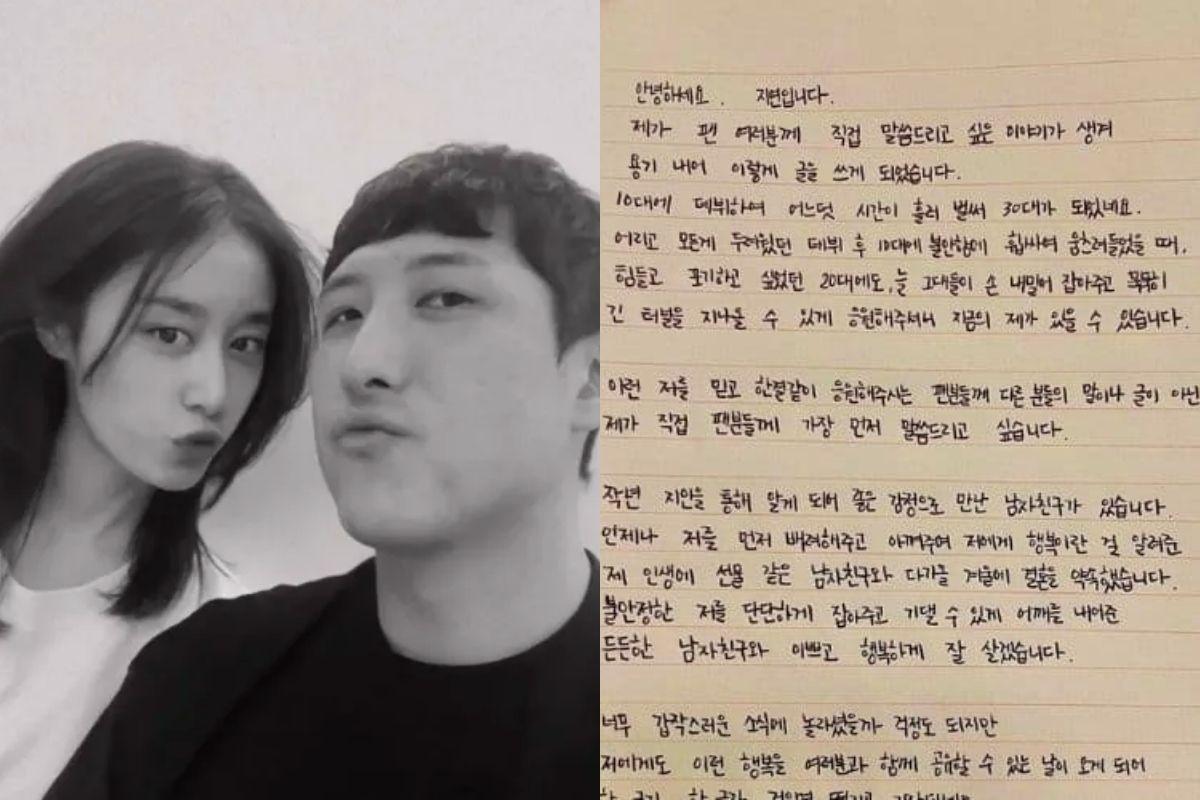 안녕하세요. 지연입니다.
제가 팬 여러분께 직접 말씀드리고 싶은 이야기가 생겨
용기 내어 이렇게 글을 쓰게 되었습니다.
10대에 데뷔하여 어느덧 시간이 흘러 벌써 30대가 되었네요.
어리고 모든게 두려웠던 데뷔 후 10대에 불안함에 휩싸여 움츠러들었을 때,
힘들고 포기하고 싶었던 20대에도, 늘 그대들이 손 내밀어 잡아주고 묵묵히
긴 터널을 지나올 수 있게 응원해주셔서 지금의 제가 있을 수 있습니다.
이런 저를 믿고 한결같이 응원해주시는 팬분들께 다른 분들의 말이나 글이 아닌
제가 직접 팬분들께 가장 먼저 말씀드리고 싶습니다.
작년 지인을 통해 알게 되어 좋은 감정으로 만난 남자친구가 있습니다.
언제나 저를 먼저 배려해주고 아껴주며 저에게 행복이란 걸 알려준
제 인생에 선물 같은 남자친구와 다가올 겨울에 결혼을 약속했습니다.
불안정한 저를 단단하게 잡아주고 기댈 수 있게 어깨를 내어준
든든한 남자친구와 이쁘고 행복하게 잘 살겠습니다.
너무 갑작스러운 소식에 놀라셨을까 걱정도 되지만
저에게도 이런 행복을 여러분과 함께 공유할 수 있는 날이 오게 되어